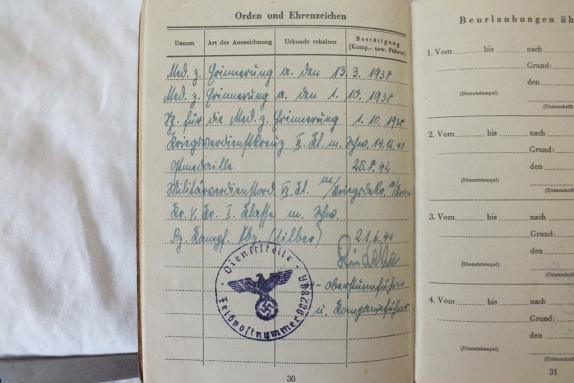 Orden und Ehrenzeichen
Datum Art der Auszeichnung Urkunde erhalten Bestätigung
(Komp.- usw. Führer)
Med. z. Erinnerung a. den 13. 3. 1938
Med. z. Erinnerung a. den 1. 10. 1938
Sp. für die Med. z. Erinnerung 1. 10. 1938
Kriegsverdienstkreuz II. Kl. m. Schw.
Ostmedaille 25. 8. 42
Militärverdienstord. VI. Kl. m/Kriegsdek.
Kr. V. Kr. I. Klasse m. Schw.
Pz. Kampf. Abz. (Silber) 21. 6. 44
-obersturmführer
u. Kompanieführer
Dienststelle
Feldpostnummer
30
Beurlaubungen üb
1. Vom bis nach
Grund:
den
(Dienststempel) (Unterschrift
2. Vom bis nach
Grund:
den
(Dienststempel) (Unterschrift
3. Vom bis nach
Grund:
den
(Dienststempel) (Unterschrift
4. Vom bis nach
Grund:
den
(Dienststempel) (Unterschrift
31